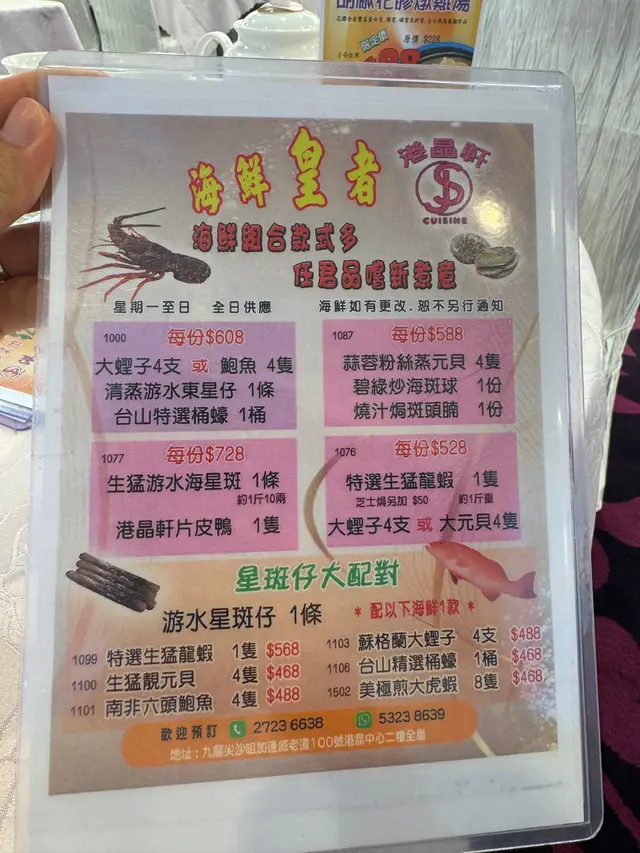 原價 $228
限定價
海鮮皇者
港晶軒
CUISINE
海鮮組合款式多
任君品嚐新煮意
星期一至日 全日供應
海鮮如有更改﹐恕不另行通知
1000 每份$608
大蟶子4支 或 鮑魚 4隻
清蒸游水東星仔 1條
台山特選桶蠔 1桶
1087 每份$588
蒜蓉粉絲蒸元貝 4隻
碧綠炒海斑球 1份
燒汁焗斑頭腩 1份
1077 每份$728
生猛游水海星斑 1條
約1斤10兩
港晶軒片皮鴨 1隻
1076 每份$528
特選生猛龍蝦 1隻
芝士焗另加 $50 約1斤重
大蟶子4支 或 大元貝4隻
星斑仔大配對
游水星斑仔 1條
* 配以下海鮮1款 *
1099 特選生猛龍蝦 1隻 $568
1100 生猛靚元貝 4隻 $468
1101 南非六頭鮑魚 4隻 $488
1103 蘇格蘭大蟶子 4支 $488
1106 台山精選桶蠔 1桶 $468
1502 美極煎大虎蝦 8隻 $468
歡迎預訂 2723 6638 5323 8639
地址：九龍尖沙咀加連威老道100號港晶中心二樓全層